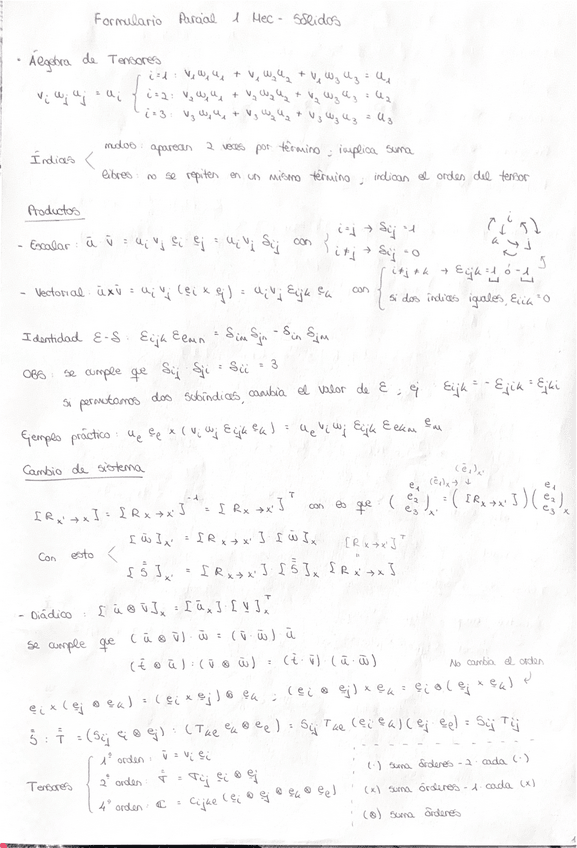 Formulario Parcial 1 Mec-Sólidos
• Álgebra de Tensores
vᵢ ωⱼ uⱼ = uᵢ { i=1: v₁ω₁u₁ + v₁ω₂u₂ + v₁ω₃u₃ = u₁
i=2: v₂ω₁u₁ + v₂ω₂u₂ + v₂ω₃u₃ = u₂
i=3: v₃ω₁u₁ + v₃ω₂u₂ + v₃ω₃u₃ = u₃
Índices < mudos: aparecen 2 veces por término; implica suma
libres: no se repiten en un mismo término; indican el orden del tensor
Productos
- Escalar: ū · v̄ = uᵢ vⱼ e̲ᵢ e̲ⱼ = uᵢ vⱼ δᵢⱼ con { i=j → δᵢⱼ=1
i≠j → δᵢⱼ=0
i j k
- Vectorial: ū x v̄ = uᵢ vⱼ (e̲ᵢ x e̲ⱼ) = uᵢ vⱼ εᵢⱼₖ e̲ₖ con { i≠j≠k → εᵢⱼₖ = 1 ó -1
si dos índices iguales, εᵢᵢₖ = 0
Identidad ε-δ: εᵢⱼₖ εₑₘₙ = δᵢₘ δⱼₙ - δᵢₙ δⱼₘ
OBS: se cumple que δᵢⱼ δⱼᵢ = δᵢᵢ = 3
si permutamos dos subíndices, cambia el valor de ε; ej εᵢⱼₖ = -εⱼᵢₖ = εⱼₖᵢ
Ejemplo práctico: uₑ e̲ₑ x (vᵢ ωⱼ εᵢⱼₖ e̲ₖ) = uₑ vᵢ ωⱼ εᵢⱼₖ εₑₖₘ e̲ₘ
Cambio de sistema
(ē₁)ₓ'
(ē₁)ₓ → ↓
[R x'→x] = [R x→x']⁻¹ = [R x→x']ᵀ con es que: (e₁ e₂ e₃)x' = ([R x→x']) (e₁ e₂ e₃)x
Con esto < [ω̄]x' = [R x→x'] · [ω̄]x
[R x→x']ᵀ
[S̿]x' = [R x→x'] · [S̿]x [R x'→x]
- Diádico: [ū ⊗ v̄]x = [ūx] · [v]xᵀ
Se cumple que (ū ⊗ v̄) · ω̄ = (v̄ · ω̄) ū
(t̄ ⊗ ū) : (v̄ ⊗ ω̄) = (t̄ · v̄) (ū · ω̄)
No cambia el orden
e̲ᵢ x (e̲ⱼ ⊗ e̲ₖ) = (e̲ᵢ x e̲ⱼ) ⊗ e̲ₖ ; (e̲ᵢ ⊗ e̲ⱼ) x e̲ₖ = e̲ᵢ ⊗ (e̲ⱼ x e̲ₖ)
S̿ : T̿ = (Sᵢⱼ e̲ᵢ ⊗ e̲ⱼ) : (Tₖₑ e̲ₖ ⊗ e̲ₑ) = Sᵢⱼ Tₖₑ (e̲ᵢ e̲ₖ) (e̲ⱼ · e̲ₑ) = Sᵢⱼ Tᵢⱼ
Tensores { 1º orden: v̄ = vᵢ e̲ᵢ
2º orden: T̿ = Tᵢⱼ e̲ᵢ ⊗ e̲ⱼ
4º orden: ℂ = Cᵢⱼₖₑ (e̲ᵢ ⊗ e̲ⱼ ⊗ e̲ₖ ⊗ e̲ₑ)
(·) suma órdenes - 2 cada (·)
(x) suma órdenes - 1 cada (x)
(⊗) suma órdenes
1